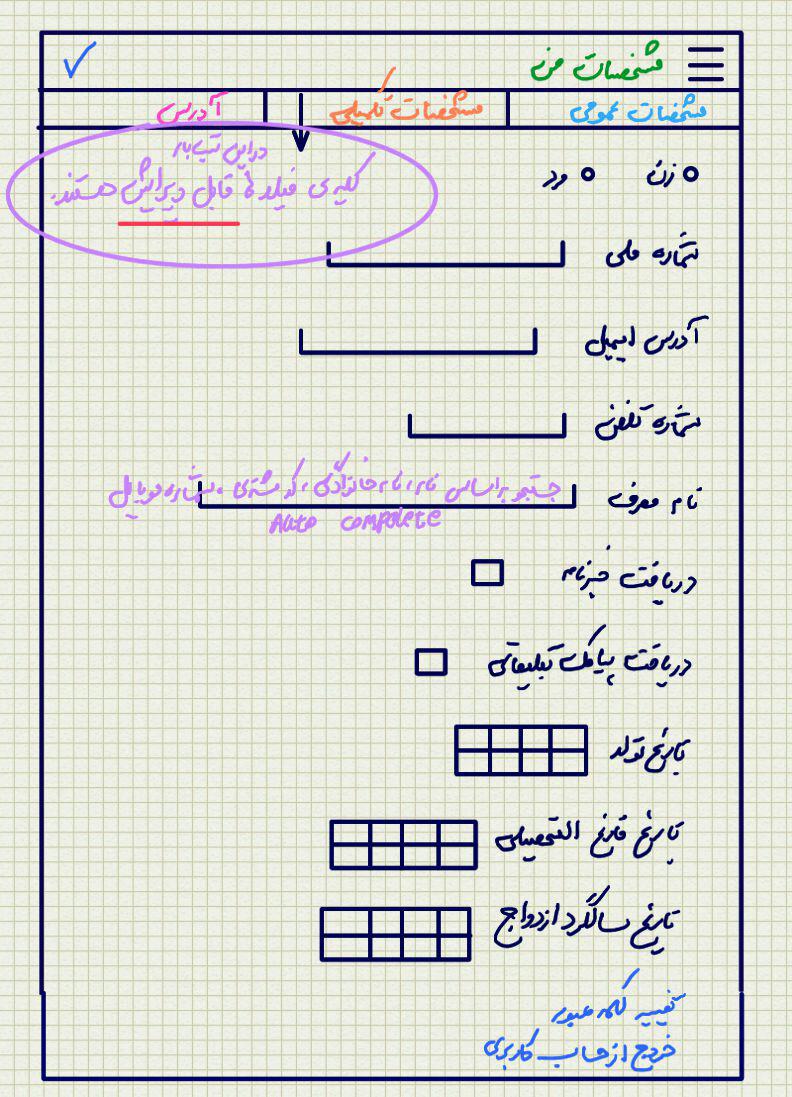 مشخصات من
مشخصات عمومی
مشخصات تکمیلی
آدرس
در این تب بار
کلیه‌ی فیلد ها قابل ویرایش هستند.
زن
مرد
شماره ملی
آدرس ایمیل
شماره تلفن
نام معرف
جستجو بر اساس نام، نام خانوادگی، کد مشتری، شماره موبایل
Auto complete
دریافت خبرنامه
دریافت پیامک تبلیغاتی
تاریخ تولد
تاریخ فارغ التحصیلی
تاریخ سالگرد ازدواج
تغییر کلمه عبور
خروج از حساب کاربری